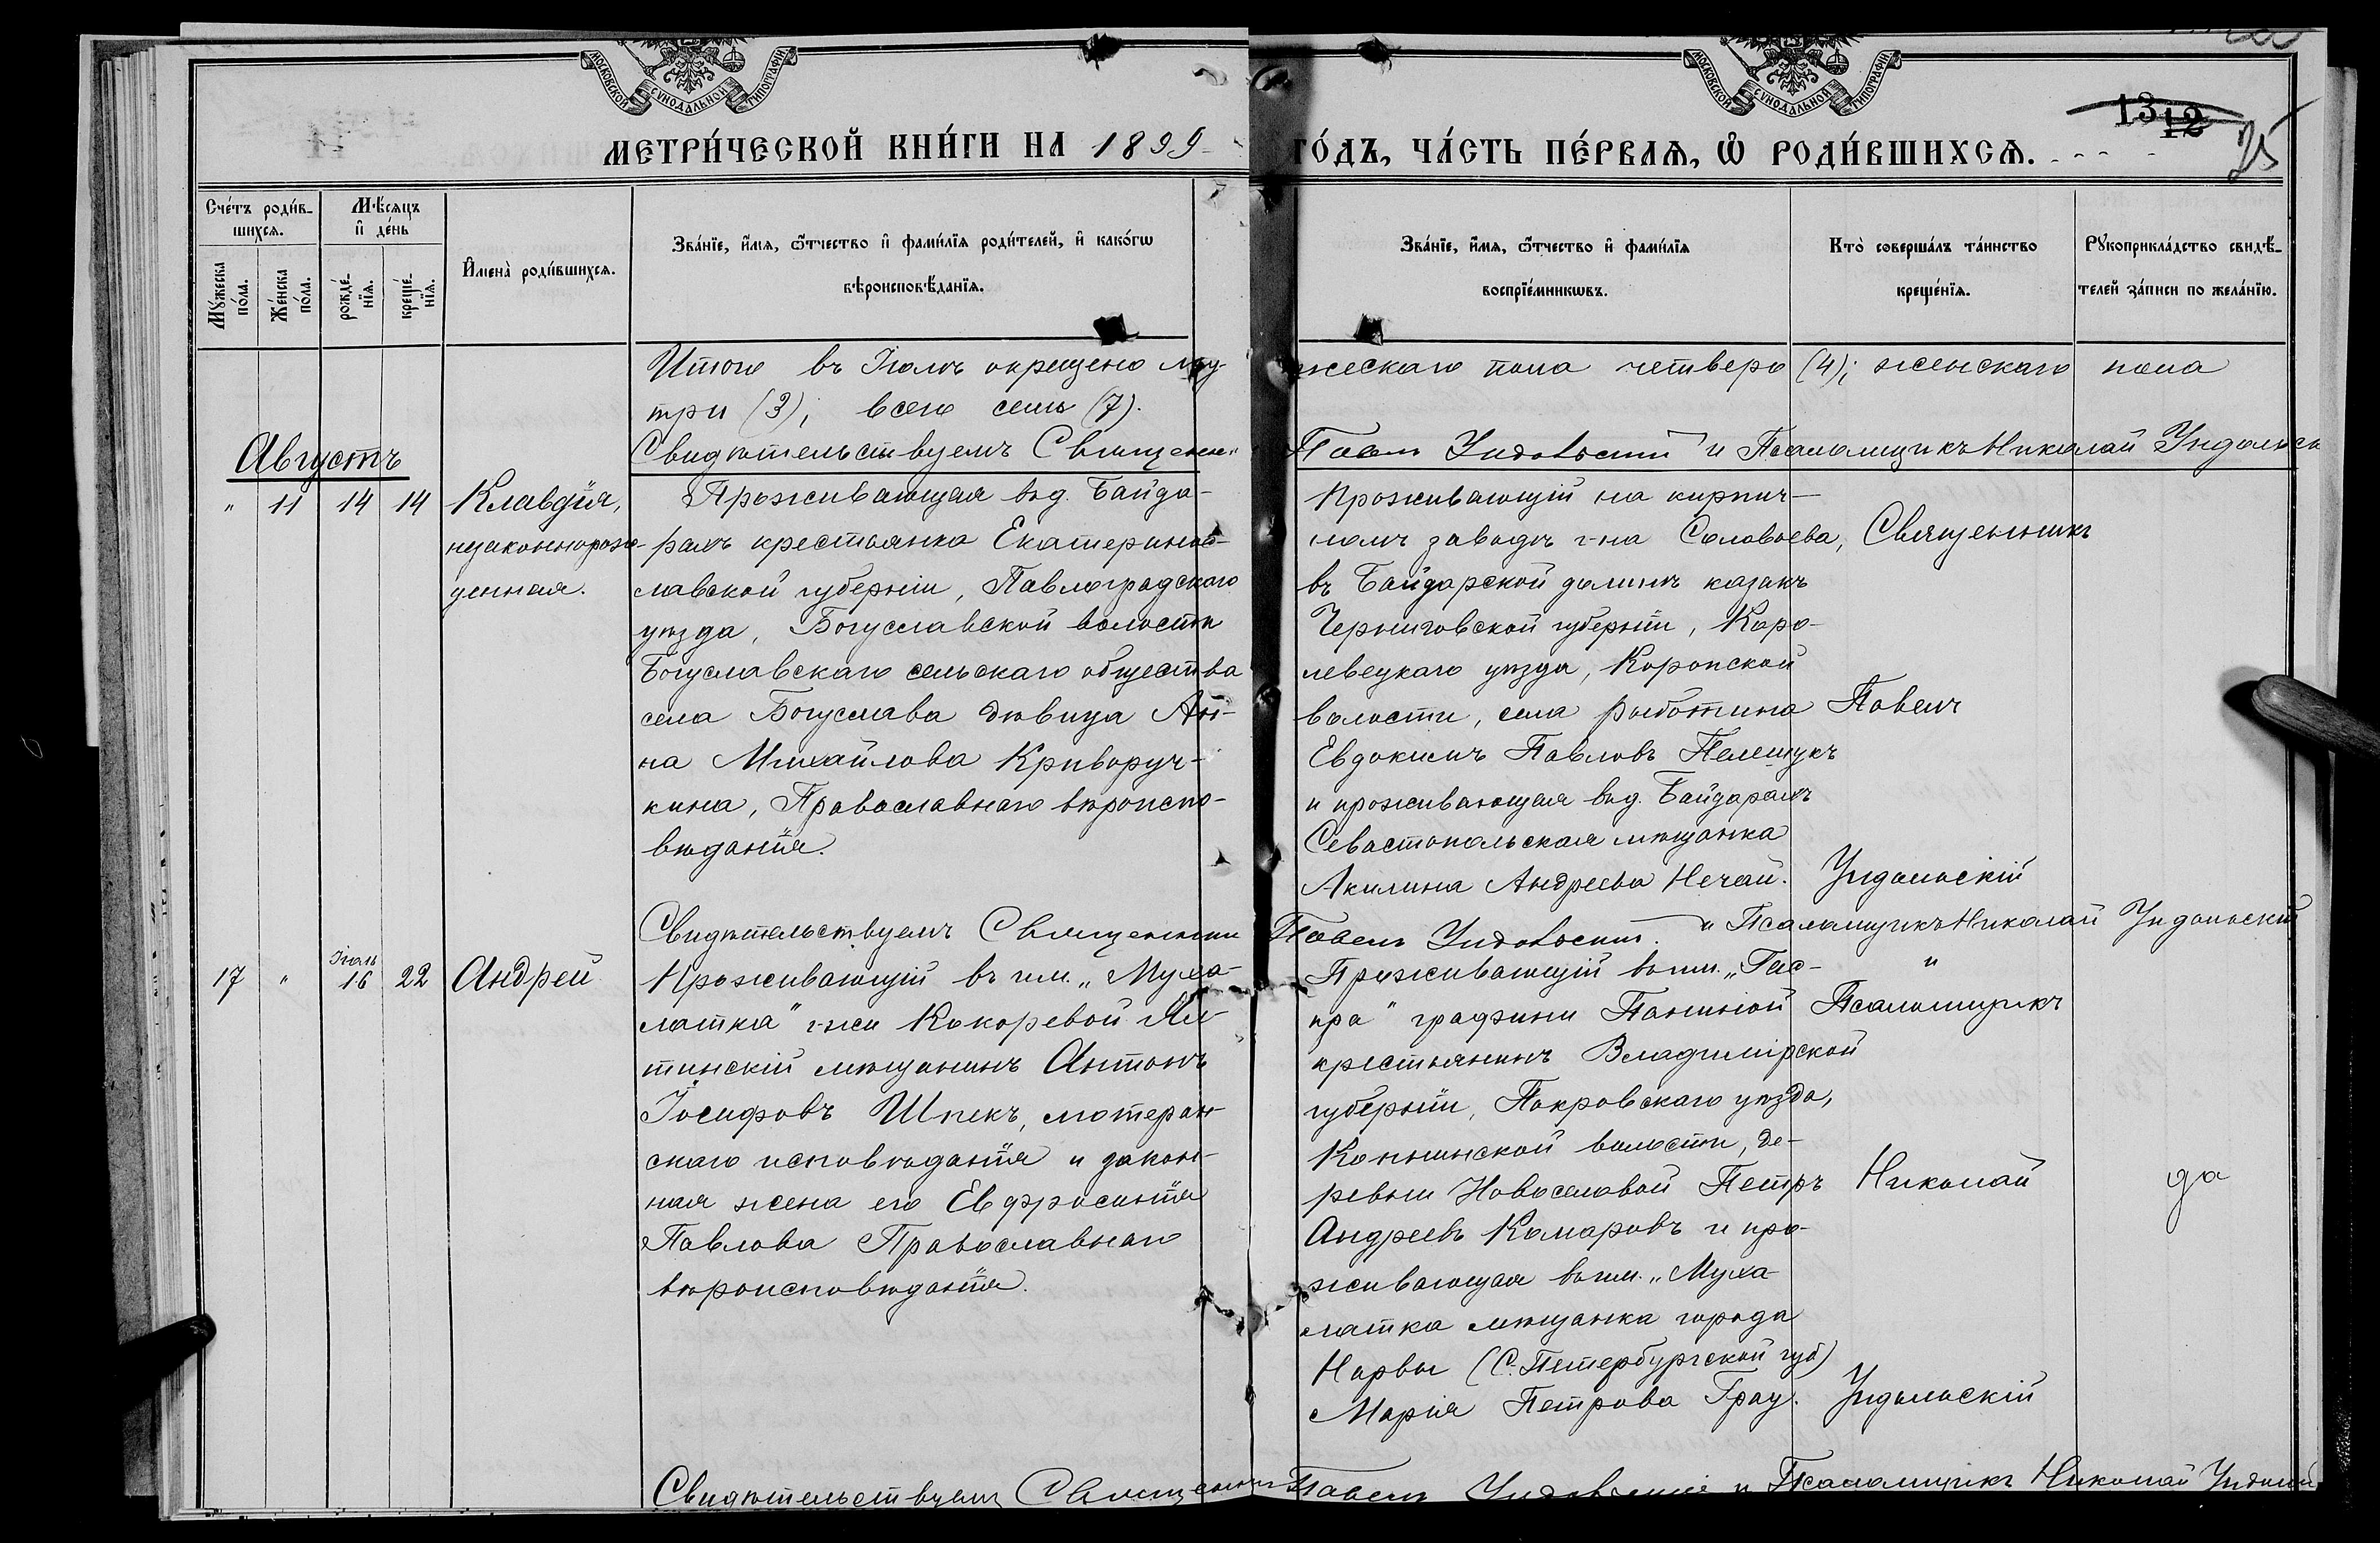 МОСКОВСКОЙ СУНОДАЛЬНОЙ ТИПОГРАФІИ
МОСКОВСКОЙ СУНОДАЛЬНОЙ ТИПОГРАФІИ
МЕТРИ́ЧЕСКОЙ КНИ́ГИ НА 1899
ГО́ДЪ, ЧА́СТЬ ПЕ́РВАЯ, Ѡ РОДИ́ВШИХСЯ.
13 12
25
Сче́тъ роди́в-
шихся.
Мѣ́сяцъ
и҆ де́нь
Му́жеска
по́ла.
Же́нска
по́ла.
рожде́-
нїя.
креще́-
нїя.
И҆мена̀ роди́вшихся.
Зва́нїе, и҆́мя, ѻ҆́тчество и҆ фами́лїя роди́телей, и҆ како́гѡ
вѣроисповѣ́данїя.
Зва́нїе, и҆́мя, ѻ҆́тчество и҆ фами́лїя
воспрїе́мникѡвъ.
Кто̀ соверша́лъ та́инство
креще́нїя.
Рукоприкла́дство свидѣ́-
телей за́писи по жела́нїю.
Итого въ Іюлѣ окрещено му-
жескаго пола четверо (4); женскаго пола
три (3); всего семь (7).
Свидѣтельствуемъ Священн.
Павелъ Ундольскій и Псаломщикъ Николай Ундольск
Августъ
" 11 14 14 Клавдія,
незаконнорож-
денная.
Проживающая въ д. Байда-
рахъ крестьянка Екатеринос-
лавской губерніи, Павлоградскаго
уѣзда, Богуславской волости
Богуславскаго сельскаго общества
села Богуслава дѣвица Ан-
на Михайлова Криворуч-
кина, Православнаго вѣроиспо-
вѣданія.
Проживающій на кирпич-
номъ заводѣ г-на Соловьева,
въ Байдарской долинѣ казакъ
Черниговской губерніи, Кро-
левецкаго уѣзда, Коропской
волости, села Рыботина
Евдокимъ Павловъ Пелешукъ
и проживающая въ д. Байдарахъ
Севастопольская мѣщанка
Акилина Андреева Нечай.
Священникъ
Павелъ
Ундольскій
Свидѣтельствуемъ Священникъ
Павелъ Ундольскій. и Псаломщикъ Николай Ундольскій
17 " Іюль
16 22 Андрей
Проживающій въ им. „Муха-
латка" г-жи Кокоревой Ял-
тинскій мѣщанинъ Антонъ
Іосифовъ Шпекъ, лютеран-
скаго исповѣданія и закон-
ная жена его Евфросинія
Павлова Православнаго
вѣроисповѣданія.
Проживающій въ им. „Гас-
пра" графини Паниной
крестьянинъ Владимірской
губерніи, Покровскаго уѣзда,
Копнинской волости, де-
ревни Новоселовой Петръ
Андреевъ Комаровъ и про-
живающая въ им. „Муха-
латка мѣщанка города
Нарвы (С.Петербургской губ)
Марія Петрова Грау.
"
Псаломщикъ
Николай
Ундольскій
да
Свидѣтельствуемъ Священникъ
Павелъ Ундольскій и Псаломщикъ Николай Ундольскій